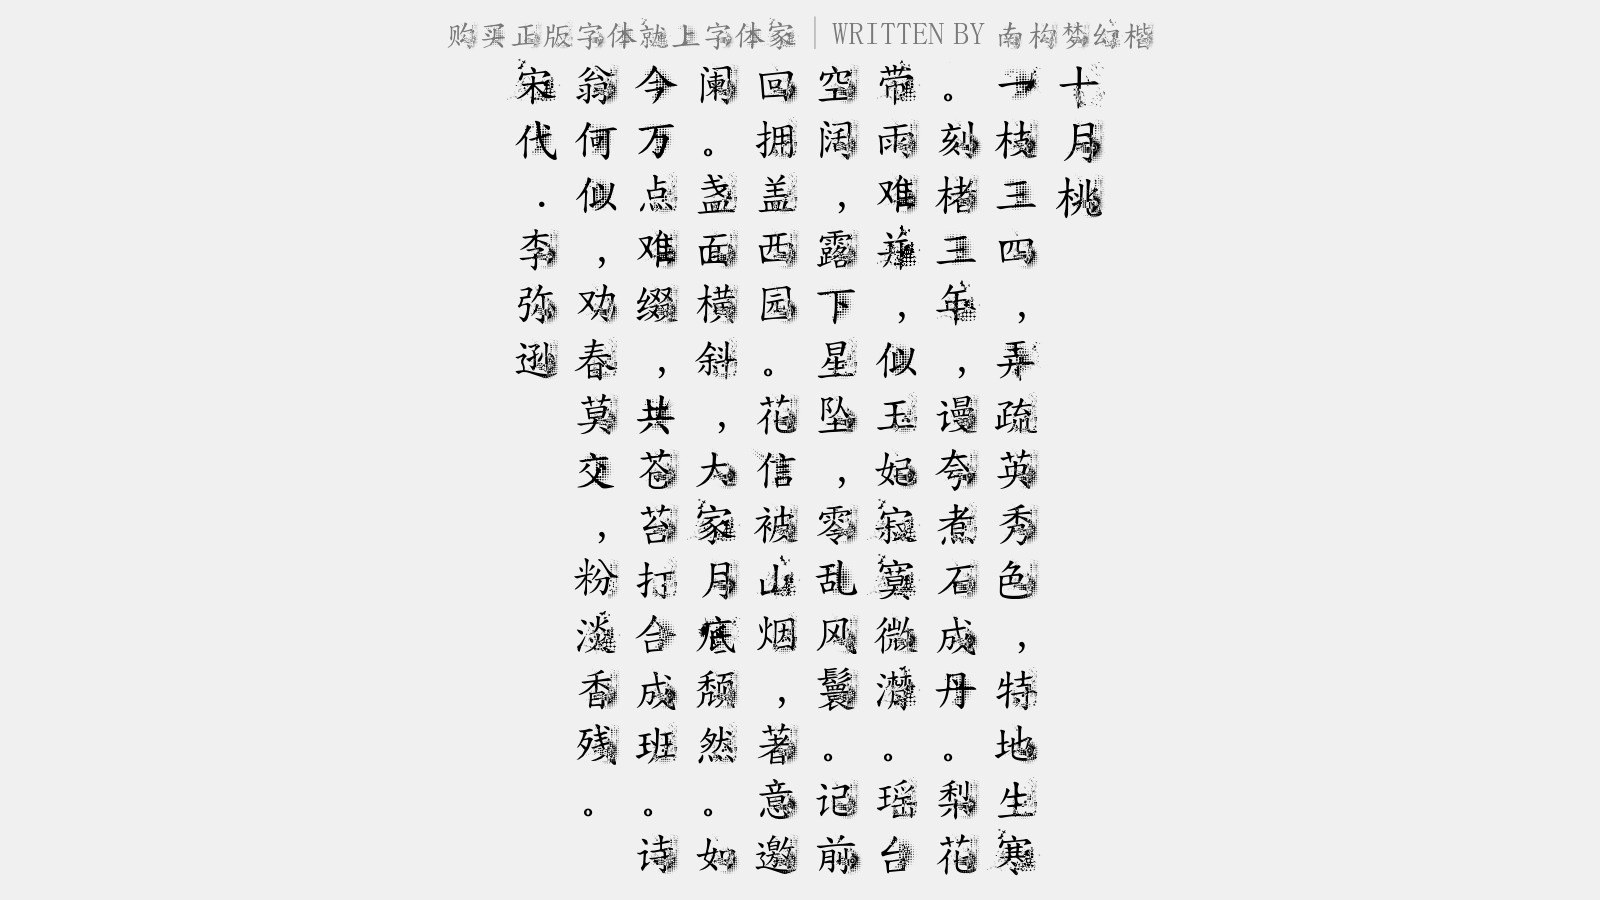 购买正版字体就上字体家｜WRITTEN BY 南构梦幻楷
十月桃
一枝三四，弄疏英秀色，特地生寒
。刻楮三年，谩夸煮石成丹。梨花
带雨难并，似玉妃寂寞微潸。瑶台
空阔，露下星坠，零乱风鬟。记前
回拥盖西园。花信被山烟，著意邀
阑。盏面横斜，大家月底颓然。如
今万点难缀，共苍苔打合成班。诗
翁何似，劝春莫交，粉淡香残。
宋代．李弥逊